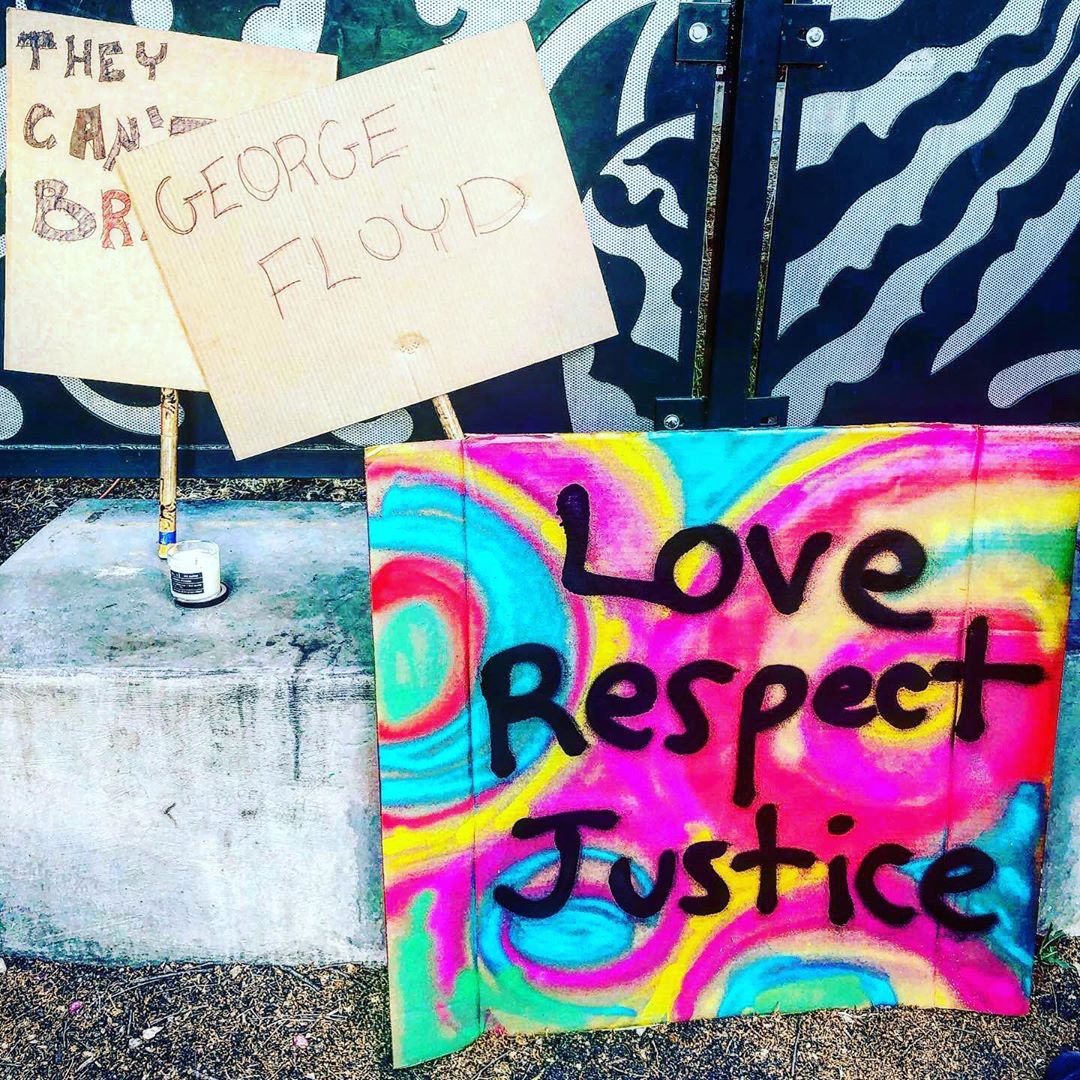 THEY
CAN'T
BR
GEORGE
FLOYD
Love
Respect
Justice